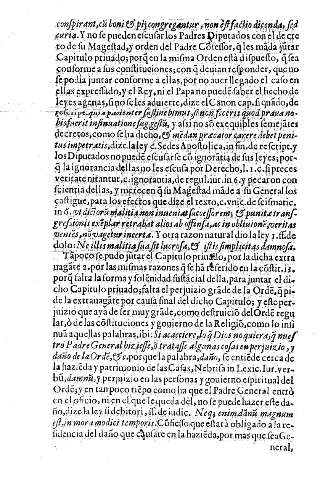 conspirant, cū boni & pij congregantur, non est factio dicenda, sed
curia. Y no se pueden escusar los Padres Diputados con el decre
to de su Magestad, y orden del Padre Cōfesor, q̄ les māda jūtar
Capitulo priuado; porq̄ en la misma Orden està dispuesto, q̄ sea
conforme a sus constituciones; con q̄ deuian responder, que no
se podia juntar conforme a ellas, por no auer llegado el caso en
ellas expressado, y el Rey, ni el Papa no puede saber el hecho de
leyes agenas, sino se les aduierte, dize el Canon cap. si quādo, de
rescript. patienter sustinebimus, si non feceris quod praua no-
bis fuerit insinuatione suggestū, y assi no sō exequibles semejātes
decretos, como se ha dicho, & mēdax precator carere debet peni-
tus impetratis, dize la ley 6. Sedes Apostolica, in fin. de rescript. y
los Diputados no puede escusarse cō ignorātia de sus leyes, por-
q̄ la ignorancia dellas no les escusa por Derecho, l. 1. ff. si preces
veritate nitātur, c. ignorantia, de regul. iur. in 6. y pecaron con
sciencia dellas, y merecen q̄ su Magestad māde a su General los
castigue, para los efectos que dize el texto, c. vnic. de scismatic.
in 6. Vt dictorū malitia non inueniat successorem, & punita trans-
gressionis exemplar retrahat alios ab offensa, ac in obliuionē, veritas
penitēs, nō Vagetur incerta. Y otra razon natural dio la ley 1. ff. de
dolo: Ne illis malitia sua sit lucrosa, & istis simplicitas damnosa.
Tāpoco se pudo jūtar el Capitulo priuado, por la dicha extra
uagāte 2. por las mismas razones q̄ se hā referido en la cōstit. 12.
porq̄ falta la forma y solēnidad sustācial della, para juntar el di-
cho Capitulo priuado; falta el perjuizio grāde de la Ordē, q̄ pi-
de la extrauagāte por causa final del dicho Capitulo; y este per-
juizio que aya de ser muy grāde, como destruiciō del Ordē regu
lar, ò de las cōstituciones y gouierno de la Religiō, como lo insi
nuā aquellas palabras, ibi: Si acaeciere, lo q̄ Dios no quiera, q̄ nues
tro Padre General hiziesse, ò tratasse algunas cosas en perjuyzio, y
daño de la Ordē, &c. porque la palabra, daño, se entiēde cerca de
la haziēda y patrimonio de las Casas, Nebrisa in Lexic. Iur. ver-
bū, damnū, y perjuizio en las personas y gouierno espiritual del
Ordē, y en tan poco tiēpo como ha que el Padre General entrò
en el oficio, ni en el que le queda dēl, no se puede hazer este da-
ño, dize la ley si debitori, ff. de iudic. Neq; enim dānū magnum
est, in mora modici temporis. Cōfiesso que estarà obligado a la re
sidencia del daño que causare en la haziēda, por mas que sea Ge-
neral,